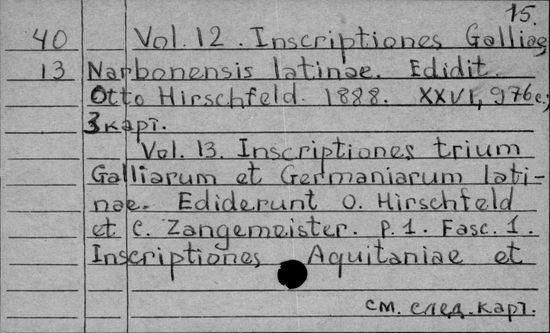 15.
40 Vol. 12. Inscriptiones Galliae
13 Narbonensis latinae. Edidit
Otto Hirschfeld. 1888. XXVI, 976 с.;
3 карт.
Vol. 13. Inscriptiones trium
Galliarum et Germaniarum lati-
nae. Ediderunt O. Hirschfeld
et C. Zangemeister. P. 1. Fasc. 1.
Inscriptiones Aquitaniae et
см. след. карт.